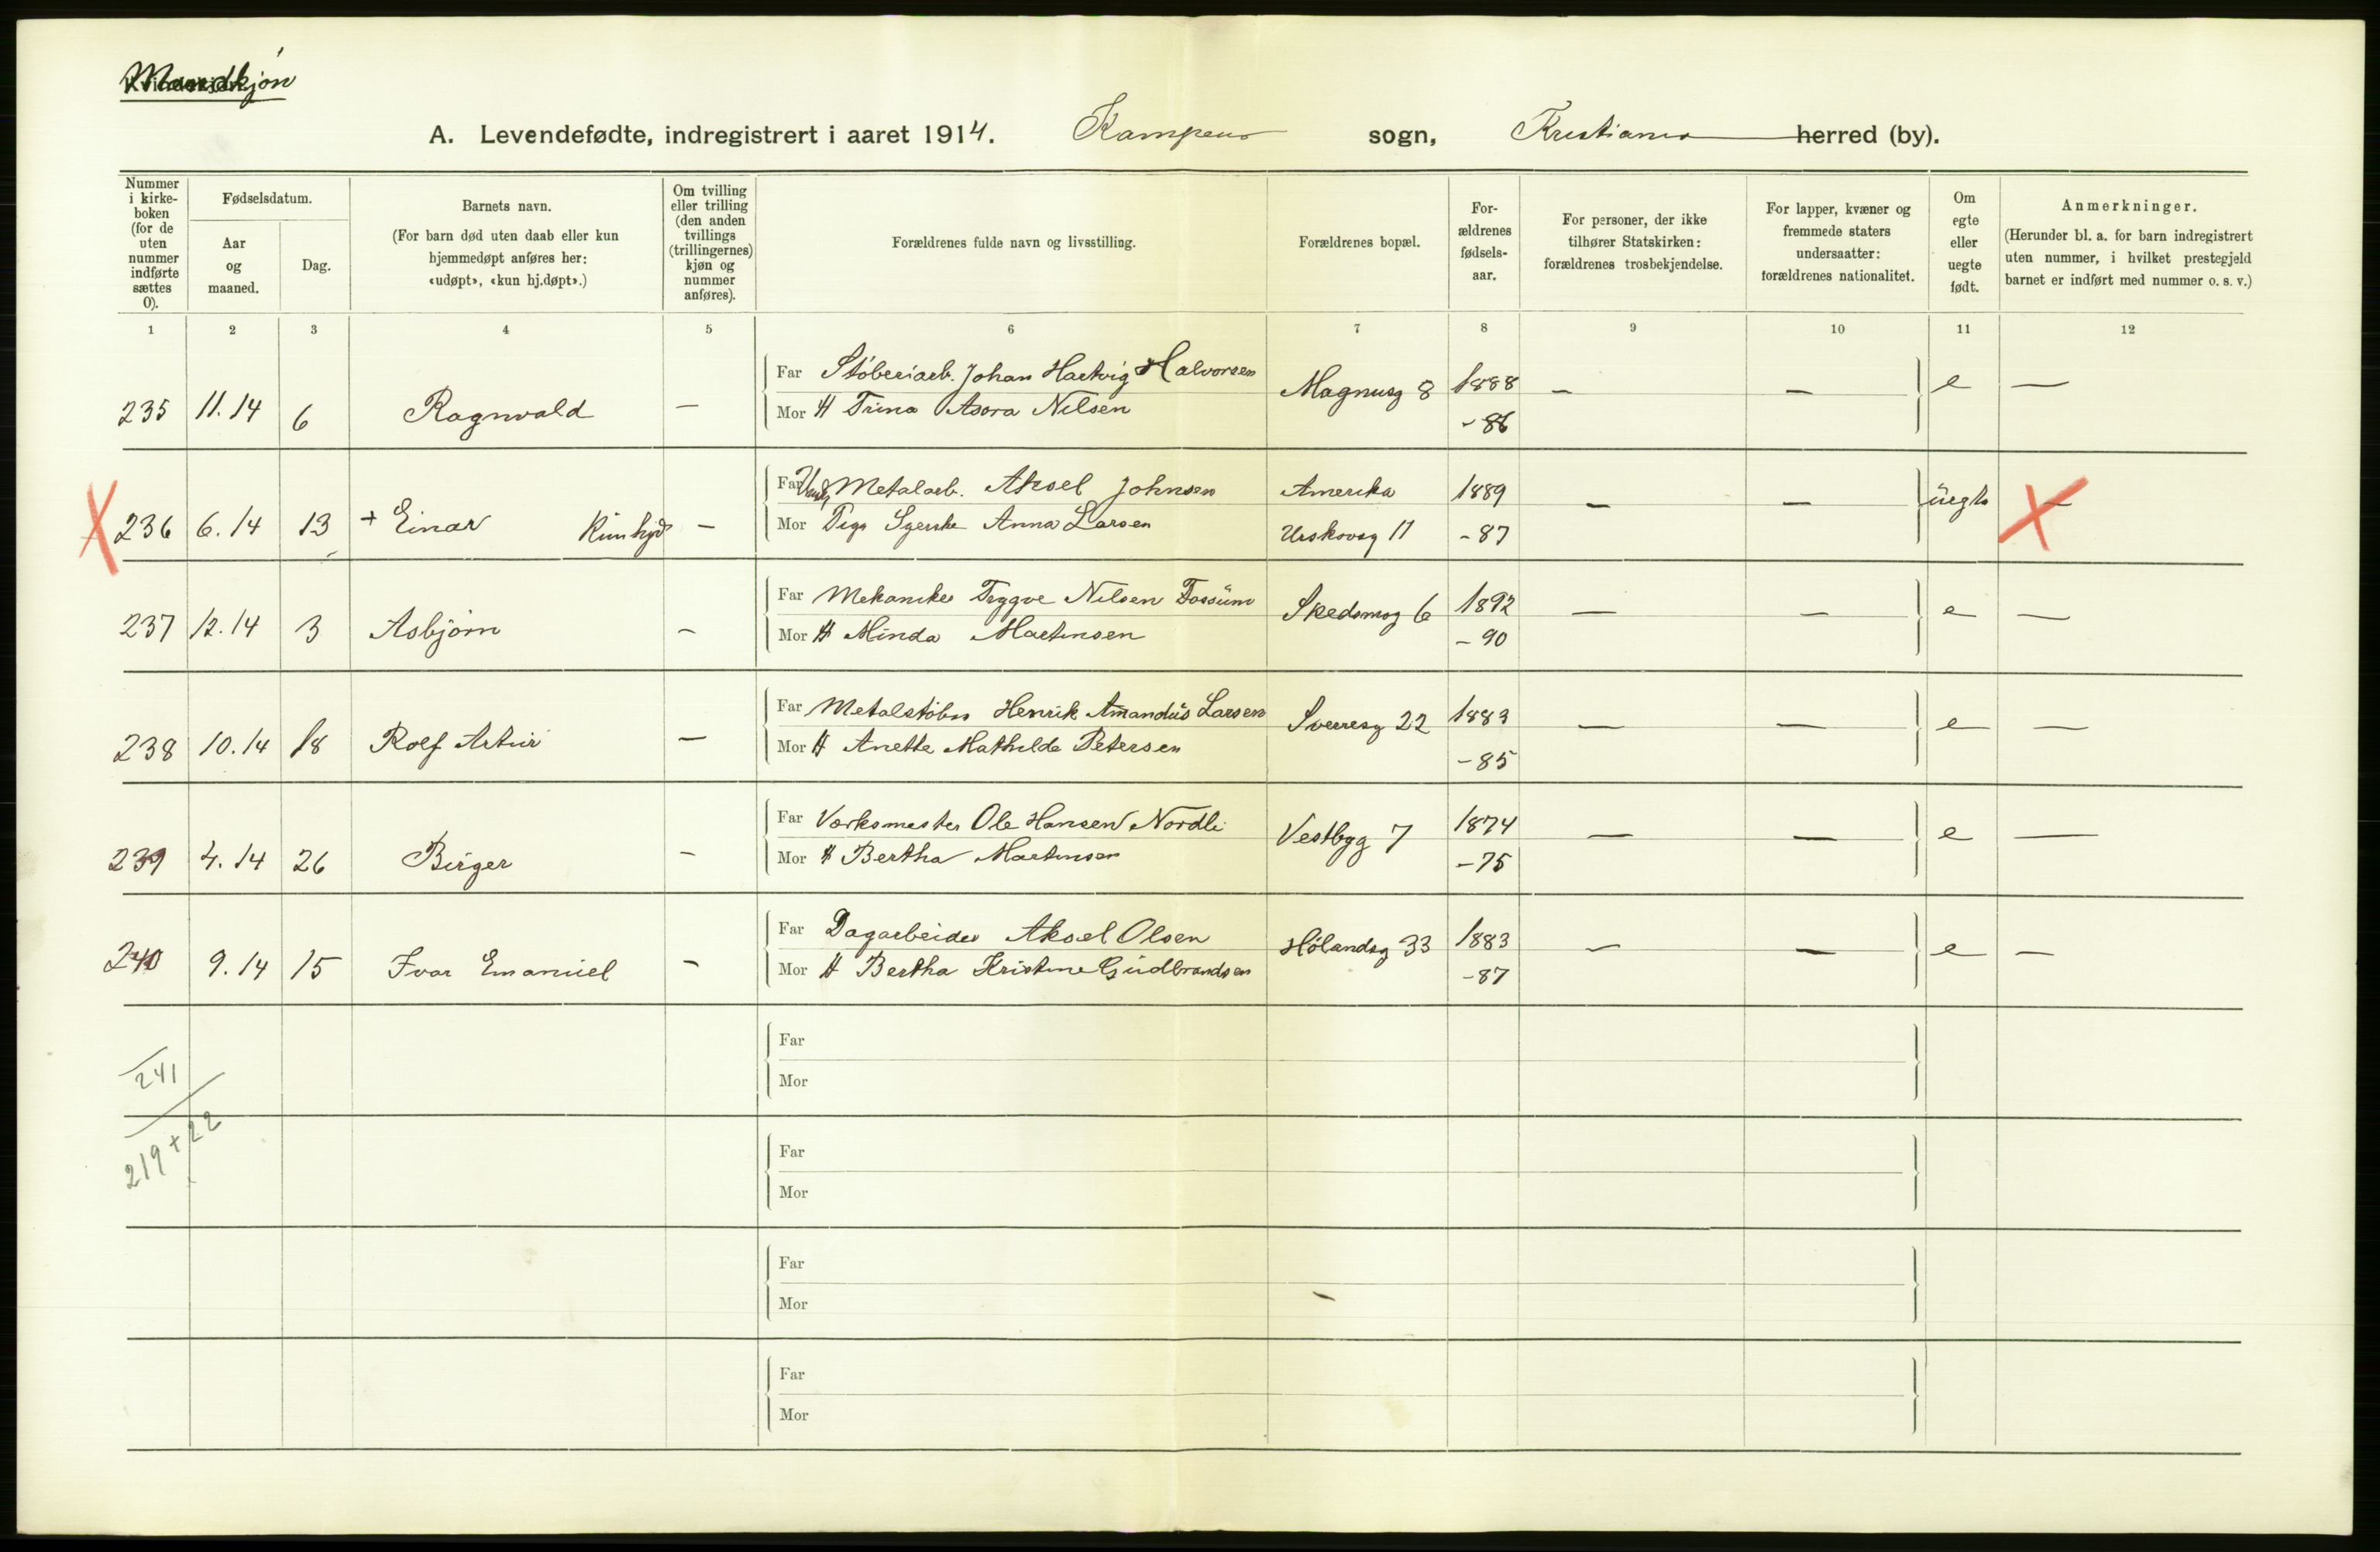 Mandkjøn
A. Levendefødte, indregistrert i aaret 1914. Kampens sogn, Kristiania herred (by).
Nummer i kirke-boken (for de uten nummer indførte sættes 0).
Fødselsdatum.
Aar og maaned.
Dag.
Barnets navn.
(For barn død uten daab eller kun hjemmedøpt anføres her: «udøpt», «kun hj.døpt».)
Om tvilling eller trilling (den anden tvillings (trillingernes) kjøn og nummer anføres).
Forældrenes fulde navn og livsstilling.
Forældrenes bopæl.
For-ældrenes fødsels-aar.
For personer, der ikke tilhører Statskirken: forældrenes trosbekjendelse.
For lapper, kvæner og fremmede staters undersaatter: forældrenes nationalitet.
Om egte eller uegte født.
Anmerkninger.
(Herunder bl. a. for barn indregistrert uten nummer, i hvilket prestegjeld barnet er indført med nummer o. s. v.)
1 2 3 4 5 6 7 8 9 10 11 12
235 11.14 6 Ragnvald — Far Støberiarb. Johan Hartvig Halvorsen Magnusg 8 1888 — — e —
Mor H Trina Asora Nilsen - 86
X 236 6.14 13 + Einar Kun hjd — Far Metalarb. Aksel Johnsen Amerika 1889 — — uegte X
Mor Pige Syerske Anna Larsen Urskovsg 11 - 87
237 12.14 3 Asbjørn — Far Mekaniker Trygve Nilsen Fossum Skedsmog 6 1892 — — e —
Mor H Minda Martinsen - 90
238 10.14 18 Rolf Artur — Far Metalstøber Henrik Amandus Larsen Sverresg 22 1883 — — e —
Mor H Anette Mathilde Petersen - 85
239 4.14 26 Birger — Far Værksmester Ole Hansen Nordli Vestbyg 7 1874 — — e —
Mor H Bertha Martinsen - 75
240 9.14 15 Ivar Emanuel — Far Dagarbeider Aksel Olsen Hølandsg 33 1883 — — e —
Mor H Bertha Kristine Gudbrandsen - 87
241
Far
Mor
219 + 22
Far
Mor
Far
Mor
Far
Mor